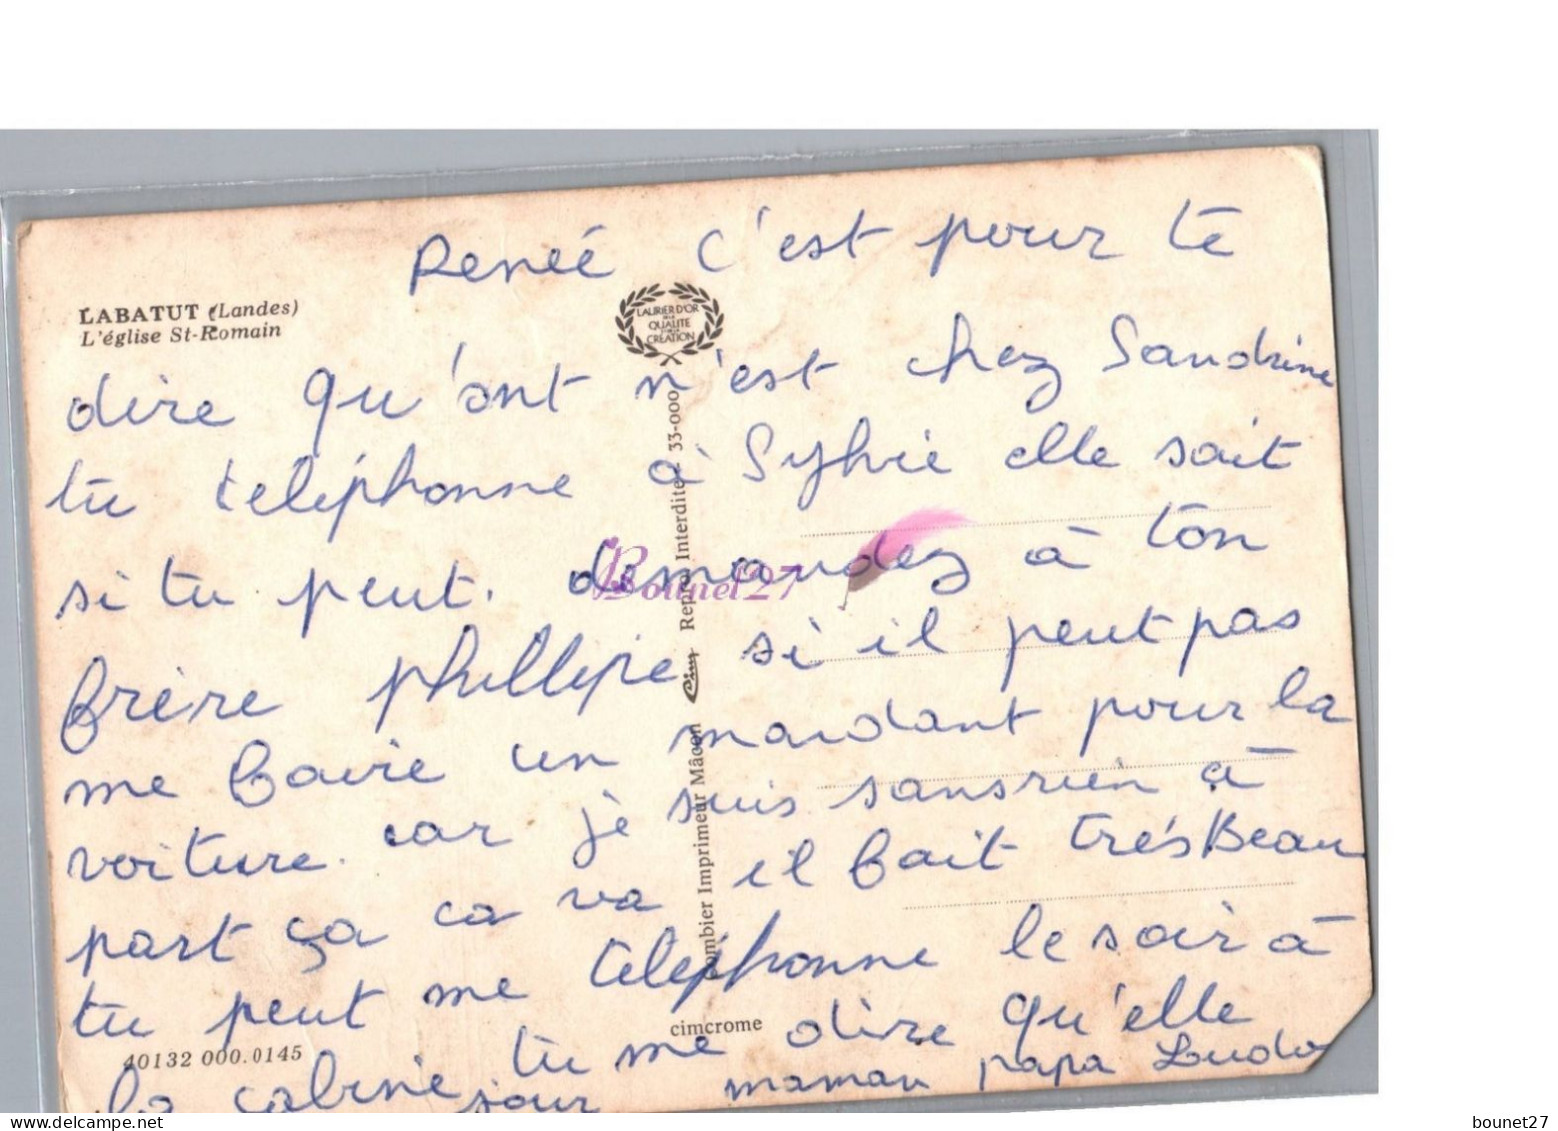 Reneé c'est pour te
LABATUT (Landes)
L'église St-Romain
LAURIER D'OR
DE LA
QUALITÉ
CRÉATION
dire qu'ont n'est chez Sandrine
tu teléphonne à Sylvie elle sait
si tu peut. demandez à ton
frère phillipe si il peut pas
me faire un mandant pour la
voiture. car je suis sansrien à
part ça ca va il fait trés Beau
tu peut me telephonne le soir à
la cabine tu me dire qu'elle
jour maman papa Ludo
40132 000.0145
cimcrome
Combier Imprimeur Mâcon Cim Repro Interdite 33-000
Bounet27
bounet27
delcampe.net